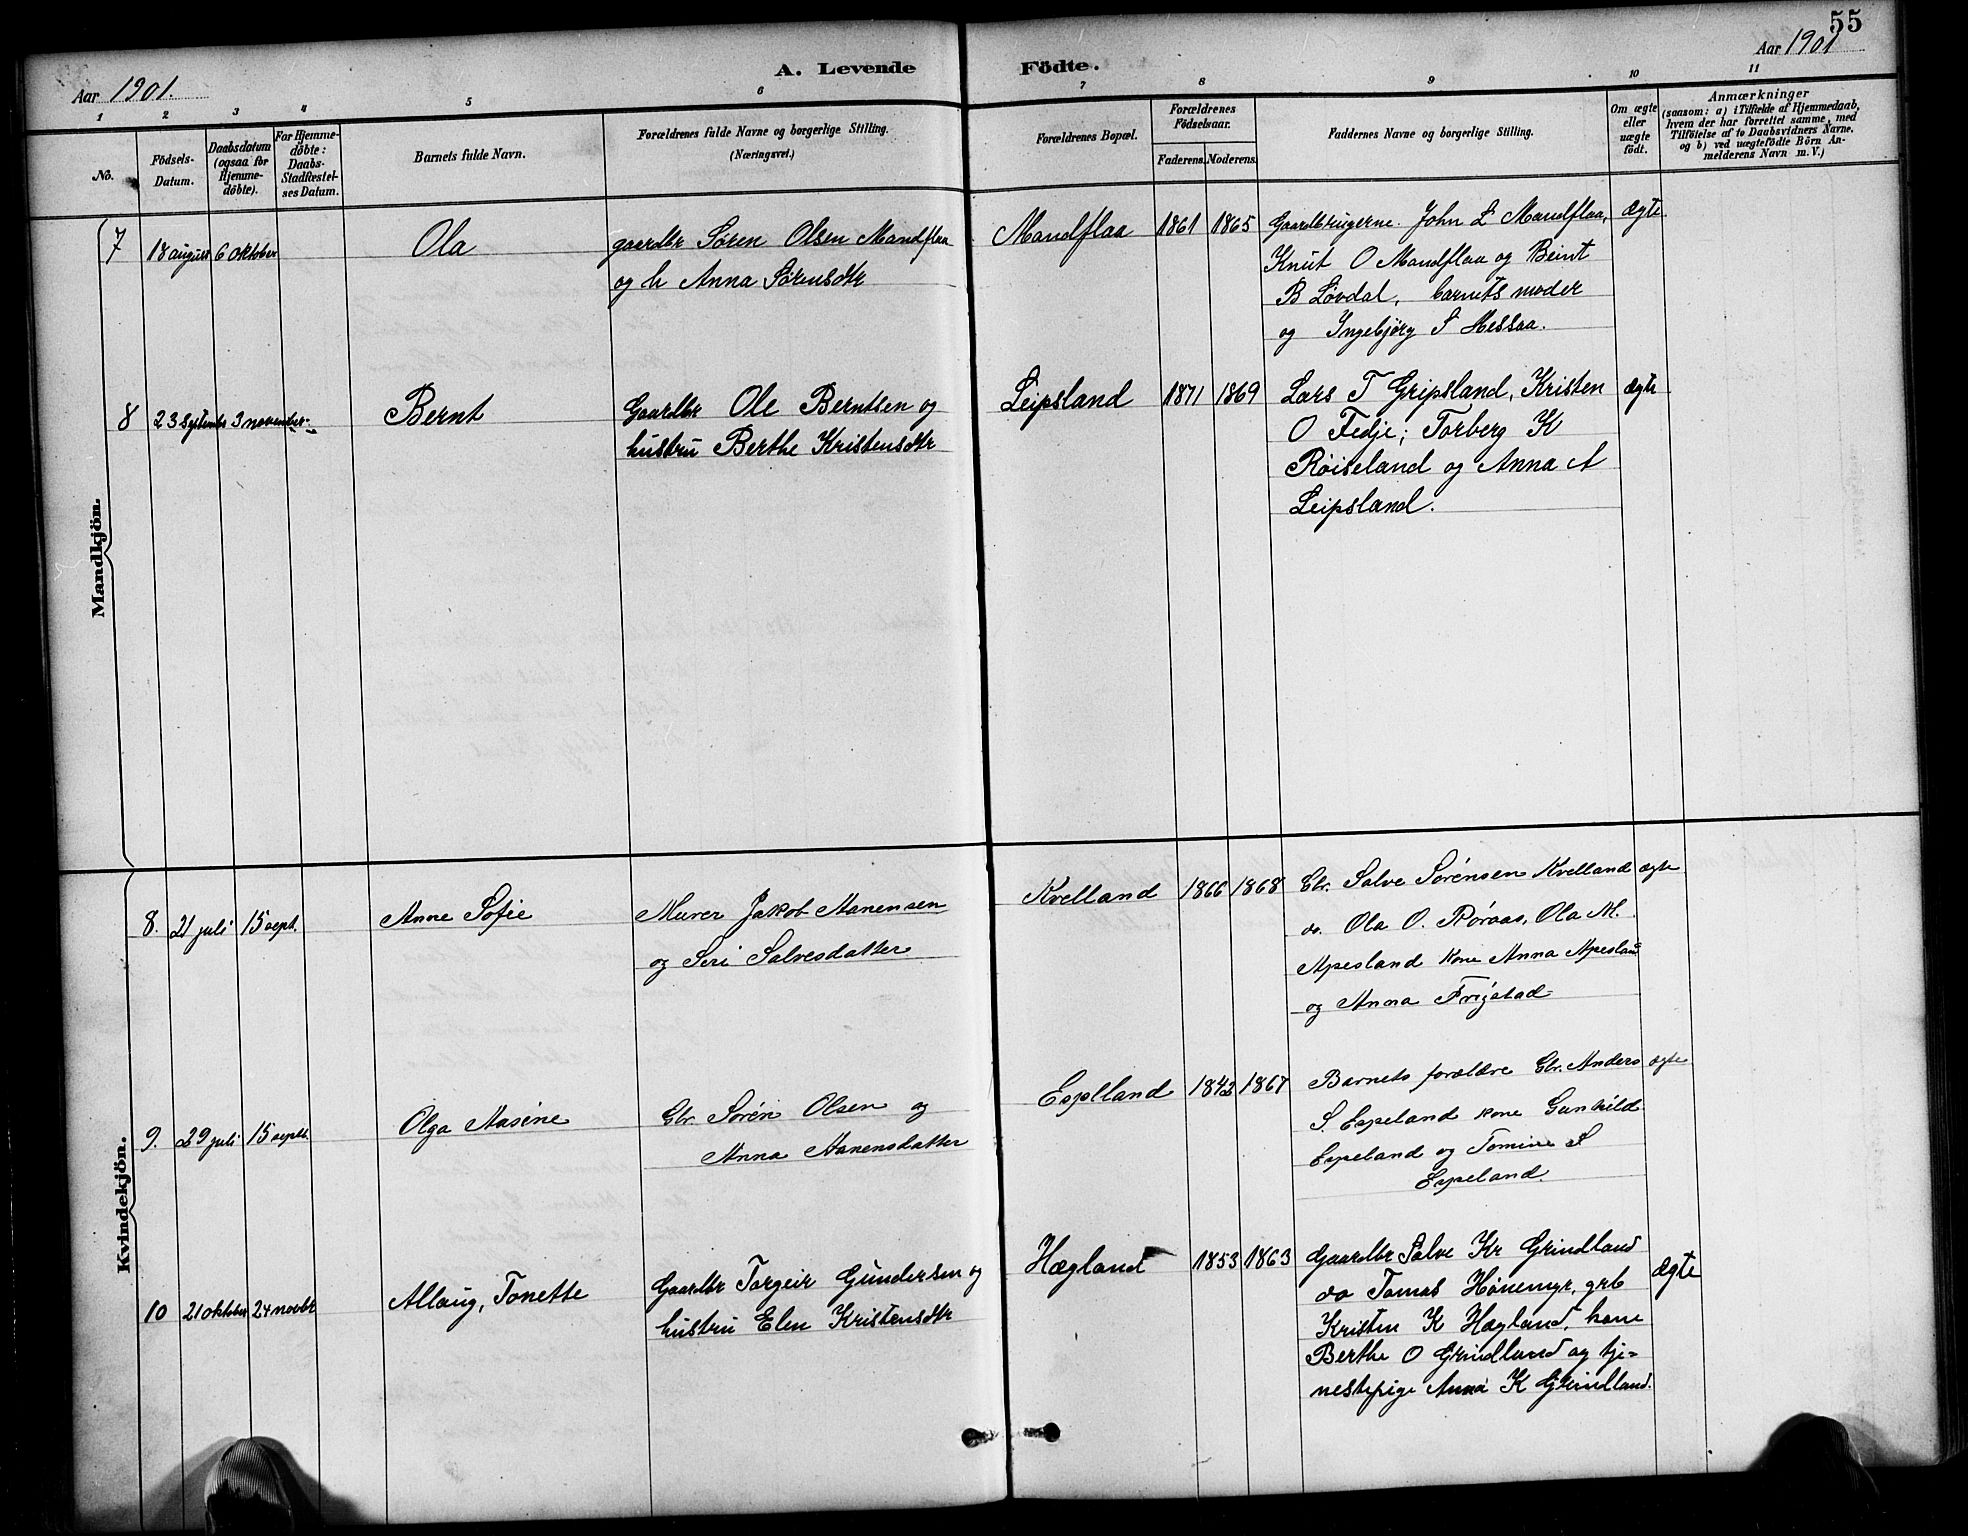 55
Aar 1901.
A. Levende Födte.
Aar 1901
1 2 3 4 5 6 7 8 9 10 11
No.
Födsels-
Datum.
Daabsdatum
(ogsaa for
Hjemme-
döbte).
For Hjemme-
döbte:
Daabs-
Stadfæstel-
ses Datum.
Barnets fulde Navn.
Forældrenes fulde Navne og borgerlige Stilling.
(Næringsvei.)
Forældrenes Bopæl.
Forældrenes
Födselsaar.
Faderens. Moderens.
Faddernes Navne og borgerlige Stilling.
Om ægte
eller
uægte
födt.
Anmærkninger
(saasom: a) i Tilfælde af Hjemmedaab,
hvem der har forrettet samme, med
Tilföielse af to Daabsvidners Navne,
og b) ved uægtefödte Börn An-
melderens Navn m. V.)
Mandkjön.
7 18 august 6 oktober Ola
gaardbr Søren Olsen Mandflaa
og h Anna Sørensdtr
Mandflaa 1861 1865
Gaardbrugerne John L Mandflaa,
Knut O Mandflaa og Beint
B Løvdal, barnets moder
og Ingebjørg S Messaa.
ægte
8 23 septembr 3 november Bernt
Gaardbr Ole Berntsen og
hustru Berthe Kristensdtr
Leipsland 1871 1869
Lars T Gripsland, Kristen
O Fedje; Torberg K
Røiseland og Anna A
Leipsland.
ægte
Kvindekjön.
8. 21 juli 15 sept. Anne Sofie
Murer Jakob Aanensen
og Siri Salvesdatter
Kvelland 1866 1868
Gbr. Salve Sørensen Kvelland
do. Ola O. Røraas, Ola M.
Apesland kone Anna Apesland
og Anna Frigstad
ægte
9. 29 juli 15 septr. Olga Aasine
Gbr. Sørén Olsen og
Anna Aanensdatter
Esplland 1842 1867
Barnets forældre Gbr. Anders
S. Espeland kone Gunhild
Espeland og Tomine S
Espeland.
ægte
10 21 oktober 24 novbr Allaug, Tonette
Gaardbr Torgeir Gundersen og
hustru Elen Kristensdtr
Hægland 1853 1863
Gaardbr Salve Kr Grindland
do Tomas Hønemyr, grb
Kristen K Hægland, kone
Berthe O Grindland og tje-
nestepige Anna K Grindland.
ægte